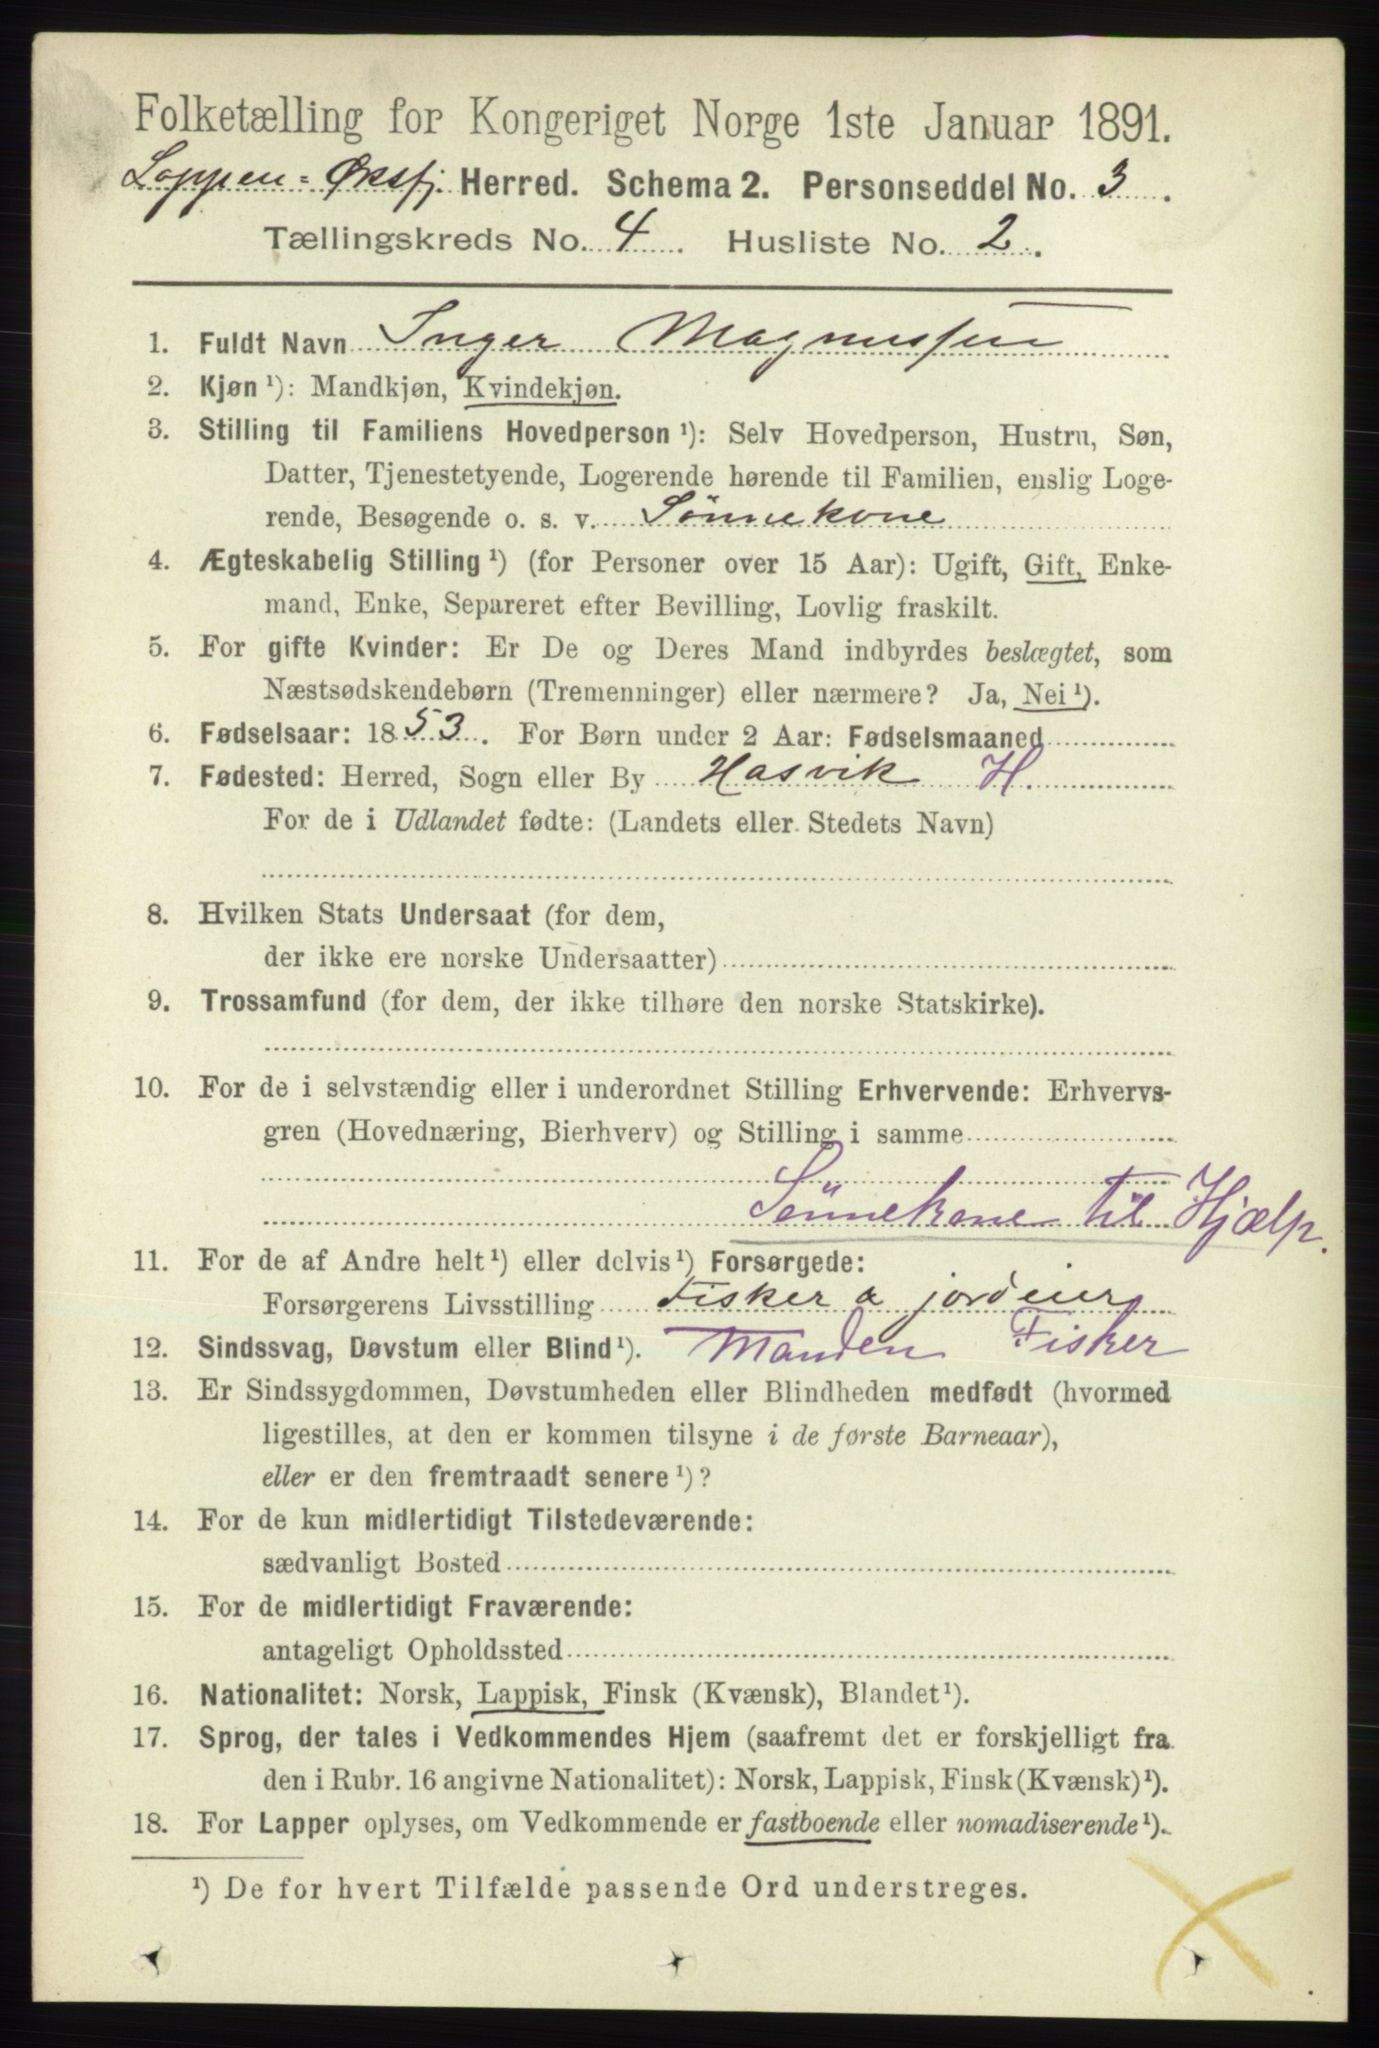 Folketælling for Kongeriget Norge 1ste Januar 1891.
Loppen=Øksfj. Herred. Schema 2. Personseddel No. 3.
Tællingskreds No. 4. Husliste No. 2.
1. Fuldt Navn Inger Magnussen
2. Kjøn ¹): Mandkjøn, Kvindekjøn.
3. Stilling til Familiens Hovedperson ¹): Selv Hovedperson, Hustru, Søn,
Datter, Tjenestetyende, Logerende hørende til Familien, enslig Loge-
rende, Besøgende o. s. v. Sønnekone
4. Ægteskabelig Stilling ¹) (for Personer over 15 Aar): Ugift, Gift, Enke-
mand, Enke, Separeret efter Bevilling, Lovlig fraskilt.
5. For gifte Kvinder: Er De og Deres Mand indbyrdes beslægtet, som
Næstsødskendebørn (Tremenninger) eller nærmere? Ja, Nei ¹).
6. Fødselsaar: 1853. For Børn under 2 Aar: Fødselsmaaned
7. Fødested: Herred, Sogn eller By Hasvik H.
For de i Udlandet fødte: (Landets eller Stedets Navn)
8. Hvilken Stats Undersaat (for dem,
der ikke ere norske Undersaatter)
9. Trossamfund (for dem, der ikke tilhøre den norske Statskirke).
10. For de i selvstændig eller i underordnet Stilling Erhvervende: Erhvervs-
gren (Hovednæring, Bierhverv) og Stilling i samme
Sønnekone til Hjælp.
11. For de af Andre helt ¹) eller delvis ¹) Forsørgede:
Forsørgerens Livsstilling Fisker & jordeier
12. Sindssvag, Døvstum eller Blind ¹). Manden Fisker
13. Er Sindssygdommen, Døvstumheden eller Blindheden medfødt (hvormed
ligestilles, at den er kommen tilsyne i de første Barneaar),
eller er den fremtraadt senere ¹)?
14. For de kun midlertidigt Tilstedeværende:
sædvanligt Bosted
15. For de midlertidigt Fraværende:
antageligt Opholdssted
16. Nationalitet: Norsk, Lappisk, Finsk (Kvænsk), Blandet ¹).
17. Sprog, der tales i Vedkommendes Hjem (saafremt det er forskjelligt fra
den i Rubr. 16 angivne Nationalitet): Norsk, Lappisk, Finsk (Kvænsk) ¹).
18. For Lapper oplyses, om Vedkommende er fastboende eller nomadiserende ¹).
¹) De for hvert Tilfælde passende Ord understreges.